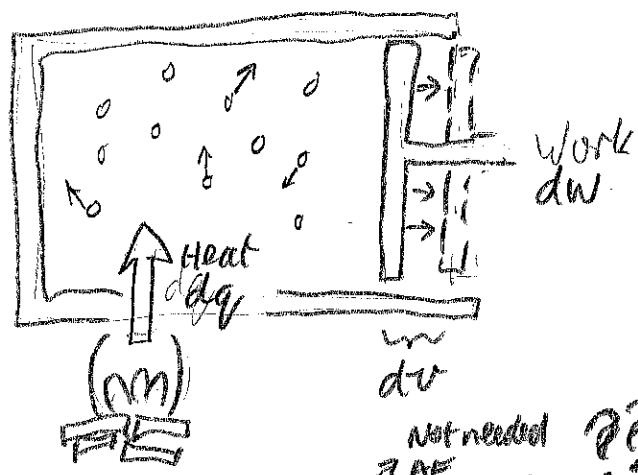 Work
dw
Heat
dq
dv
Not needed